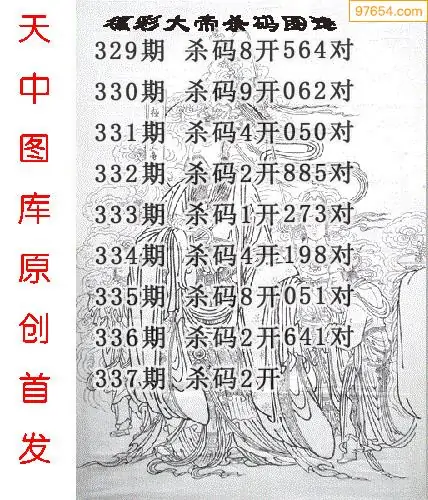 97654.com
福彩大帝杀码图迷
329期 杀码8开564对
330期 杀码9开062对
331期 杀码4开050对
332期 杀码2开885对
333期 杀码1开273对
334期 杀码4开198对
335期 杀码8开051对
336期 杀码2开641对
337期 杀码2开
天中图库原创首发